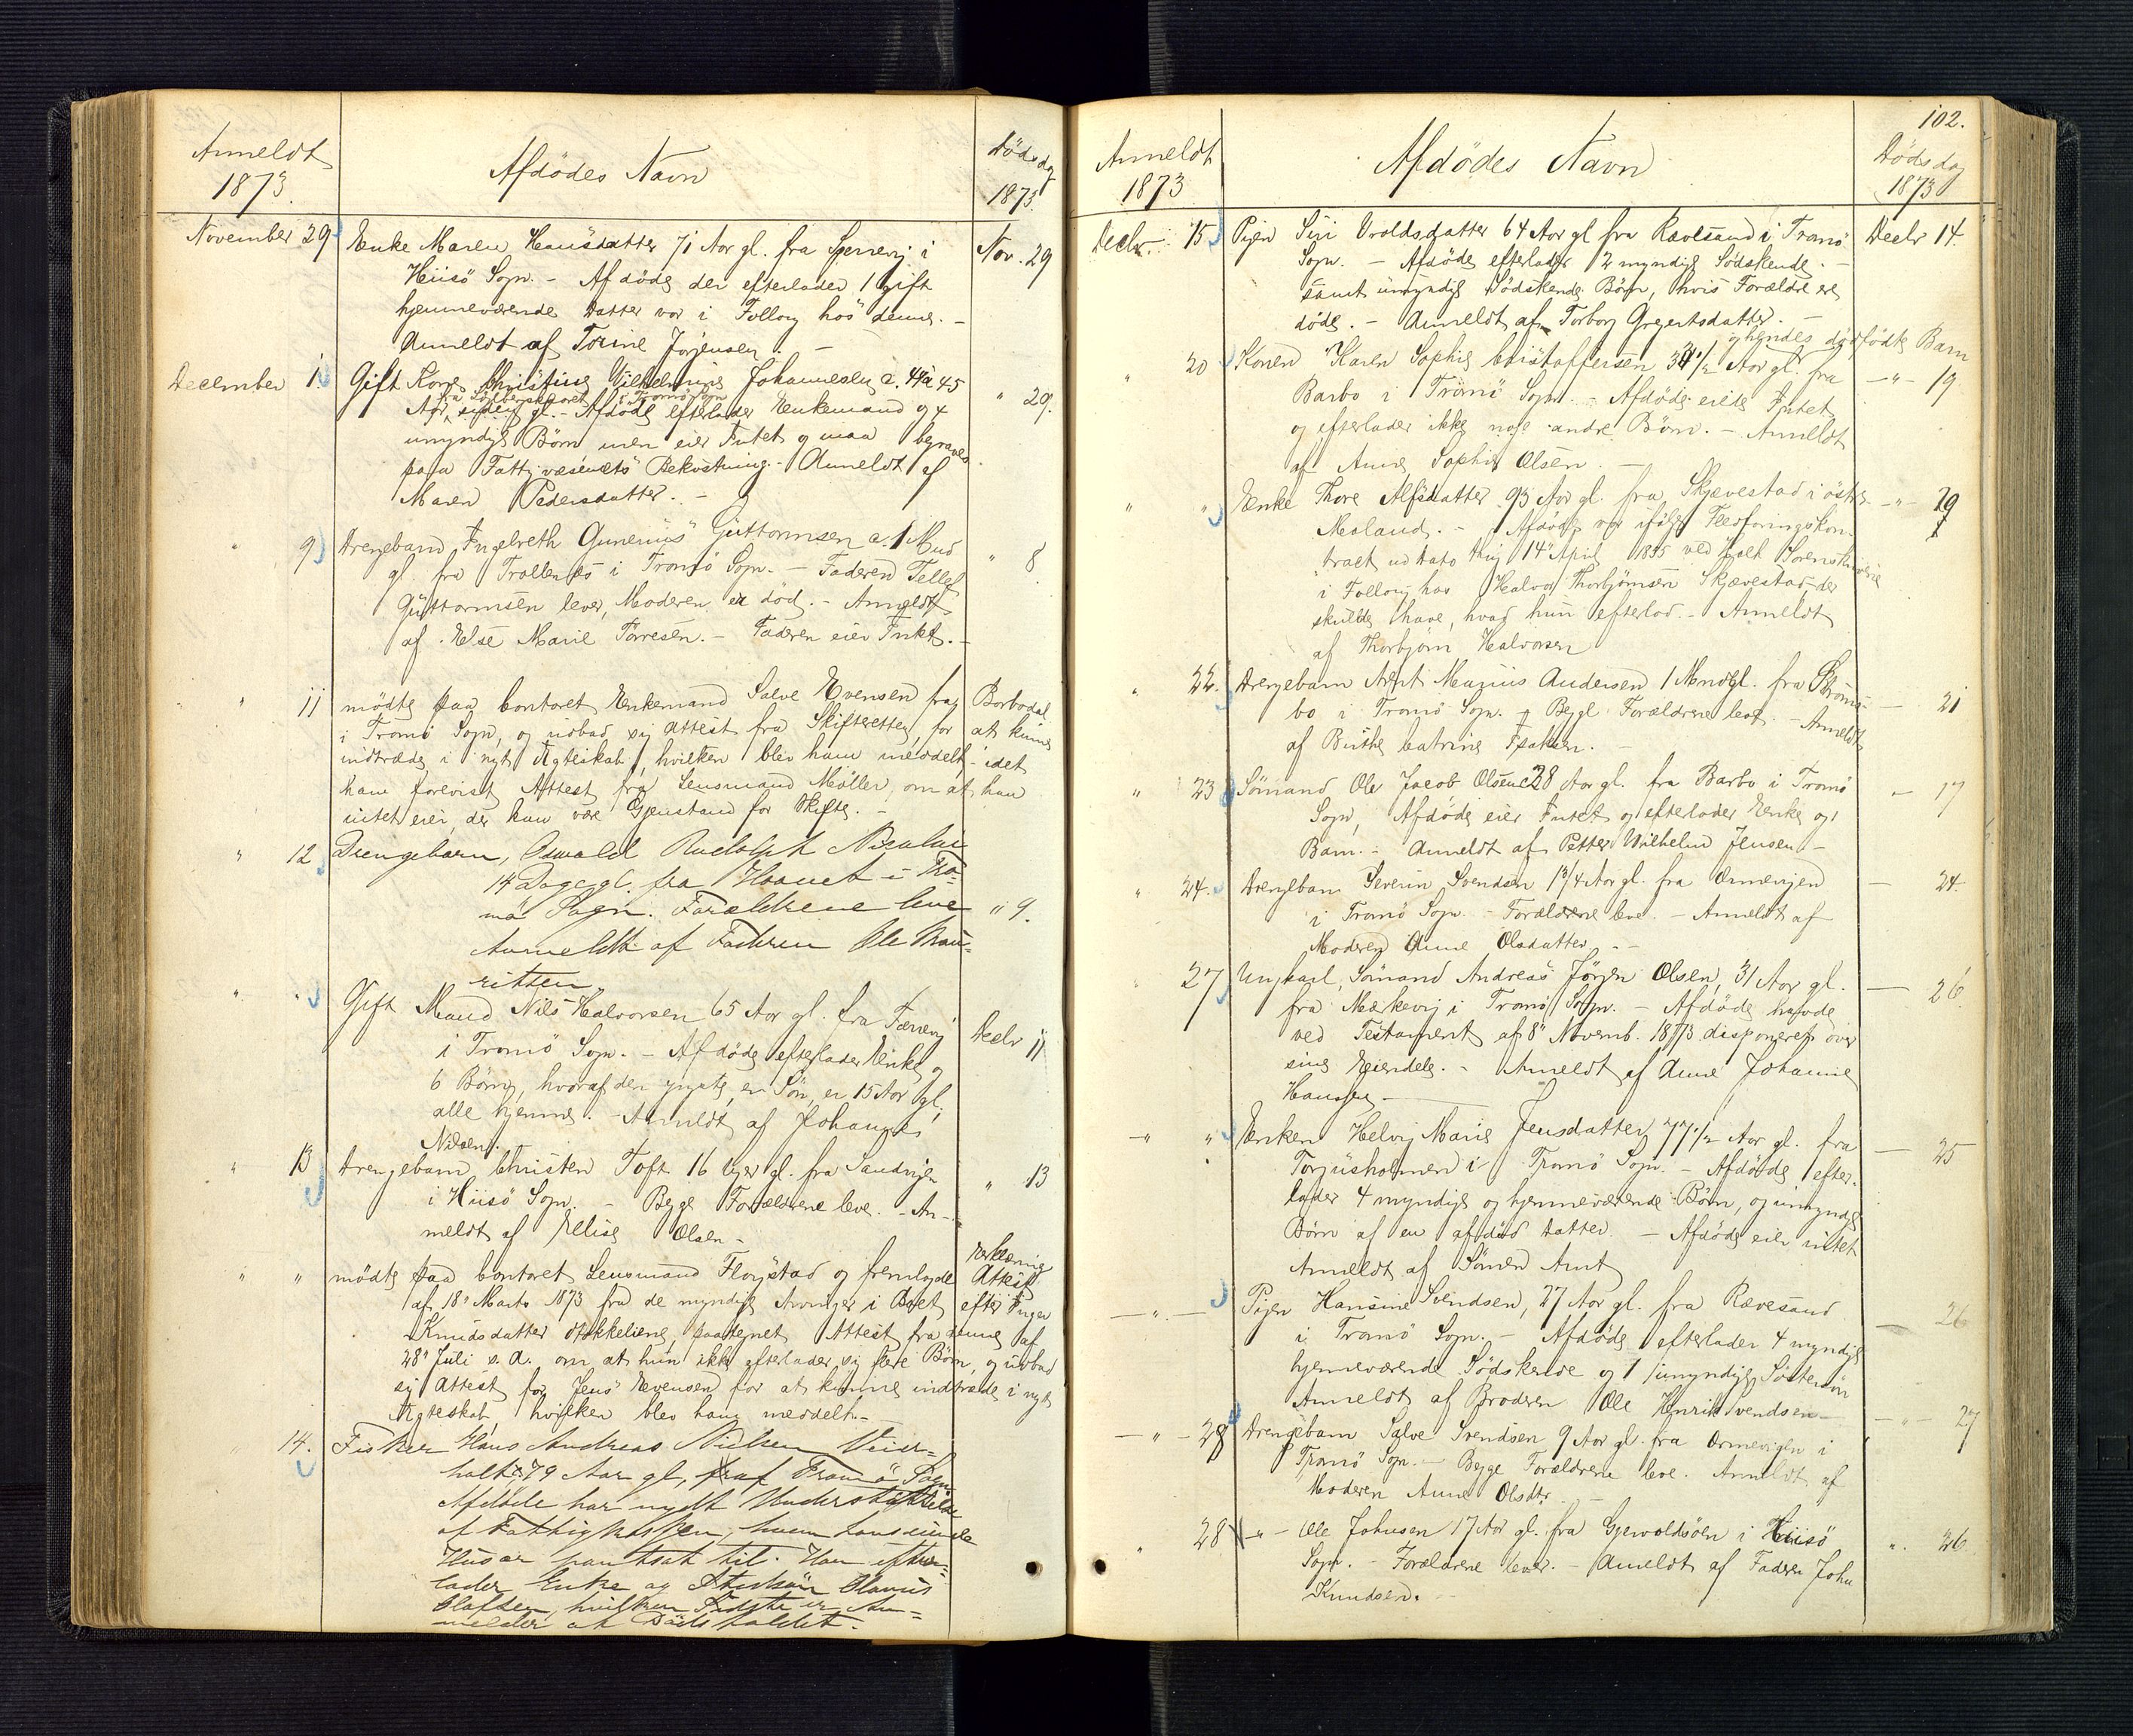 Anmeldt
1873.
Afdödes Navn
Dödsdag
1873.
November 29 Enke Maren Hansdatter 71 Aar gl. fra Sperrevig i Nov. 29
Hiisö Sogn. - Afdöde der efterlader 1 gift
hjemmeværende Datter var i Follog hos denne. -
Anmeldt af Torine Jörgensen. -
December 1. Gift Kone Christine Vilhelmine Johannesen c. 44 a 45 " 29.
i Tromö Sogn
Aar gl. - Afdöde efterlader Enkemand og 4
umyndige Börn men eier Intet og maa begraves
paa Fattigvæsenets Bekostning. - Anmeldt af
Maren Pedersdatter. -
" 9 Drengebarn Ingebreth Gunerius Guttormsen c. 1 Mnd " 8
gl. fra Trollenes i Tromö Sogn. - Faderen Tellef
Guttormsen lever, Moderen er död. - Anmeldt
af Else Marie Törresen. - Faderen eier Intet. -
" 11 mödte paa Contoret Enkemand Salve Evensen fra Barbodal
i Tromö Sogn, og udbad sig Attest fra Skifteretten for at kunne
indtræde i nyt Ægteskab, hvilken blev ham meddelt, - idet
han foreviste Attest fra Lensmand Möller, om at han
intet eier, der kan være Gjenstand for Skifte. -
" 12 Drengebarn, Oswald Rudolph Nicolai
14 Dage gl. fra Havnet i Tro-
mö Sogn. Forældrene leve " 9.
Anmeldt af Faderen Ole Mau-
ritzen.
" " Gift Mand Nils Halvorsen 65 Aar gl. fra Færvig Decbr 11
i Tromö Sogn. - Afdöde efterlader Enke og
6 Börn, hvoraf den yngste, en Sön, er 15 Aar gl.,
alle hjemme. - Anmeldt af Johannes
Nilsen.
" 13 Drengebarn Christen Toft 16 Uger gl. fra Sandvigen " 13
i Hiisö Sogn. - Begge Forældrene leve. - An-
meldt af Elise Olsen -
" " mödte paa Contoret Lensmand Flogstad og fremlagde Attest
af 18' Marts 1873 fra de myndige Arvinger i Boet efter Inger
Knudsdatter paategnet Attest fra denne af
28' Juli s. A. om at hun ikke efterlader sig flere Börn, og udbad
sig Attest for Jens Evensen for at kunne indtræde i nyt
Ægteskab, hvilken blev ham meddelt. -
" 14. Fisker Hans Andreas Nielsen Veier-
holt, 79 Aar gl, af Tromö Sogn
Afdöde har nydt Understöttelse
af Fattigkassen, hvem hans
Huus er pantsat til. Han efter-
lader Enke og Stedsön Olaus
Olafsen, hvilken Sidste er An-
melder af Dödsfaldet. -
102.
Anmeldt
1873
Afdödes Navn
Dödsdag
1873
Decbr. 15 Pigen Siri Oroldsdatter 64 Aar gl fra Rævesand i Tromö Decbr 14.
Sogn. - Afdöde efterlader 2 myndige Södskende -
samt umyndige Södskende Börn, hvis Forældre ere
döde. - Anmeldt af Torborg Gregertsdatter. -
og hendes dödfödte Barn
" 20 Konen Karen Sophie Cristoffersen 34 1/2 Aar gl. fra -"- 19
Barbo i Tromö Sogn. - Afdöde eiede Intet
og efterlader ikke noge andre Börn. - Anmeldt
af Anne Sophie Olsen. -
" " Enke Thore Alfsdatter 93 Aar gl. fra Skjævestad i östre -"- 19
Moland. - Afdöde var ifölge Fledföringskon-
tract ud Dato 14' April 1835 ved Holt Sorenskriveri
i Follog hos Halvor Thorbjörnsen Skjævestad, der
skulde have, hvad hun efterlod. - Anmeldt
af Thorbjörn Halvorsen
" 22. Drengebarn Arnt Marius Andersen 1 Mnd gl. fra Ströms- - 21
bo i Tromö Sogn. - Begge Forældrene leve. - Anmeldt
af Birthe Catrine Isaksen. -
" 23 Sömand Ole Jacob Olsen 28 Aar gl. fra Barbo i Tromö - 17
Sogn, Afdöde eier Intet og efterlader Enke og 1
Barn. - Anmeldt af Petter Wilhelm Jensen -
" 24. Drengebarn Severin Svendsen 1 3/4 Aar gl. fra Ormevigen - 24.
i Tromö Sogn. - Forældrene leve. - Anmeldt af
Moderen Anne Olsdatter. -
" 27 Ungkarl, Sömand Andreas Jörgen Olsen, 31 Aar gl. - 26.
fra Mærkevig i Tromö Sogn. - Afdöde havde
ved Testament af 8' Novemb. 1873 disponeret over
sine Eiendele. - Anmeldt af Anne Johanne
Hansen -
-"- " Enken Helvig Marie Jensdatter 77 1/2 Aar gl. fra - 25
Torjusholmen i Tromö Sogn. - Afdöde efter-
lader 4 myndige og hjemmeværende Börn, og umyndige
Börn af en afdöd Datter. - Afdöde eier intet
Anmeldt af Sönen Arnt
-"- Pigen Hansine Svendsen, 27 Aar gl. fra Rævesand - 26
i Tromö Sogn. - Afdöde efterlader 4 myndige
hjemmeværende Södskende og 1 umyndig Söstersön
Anmeldt af Broderen Ole Henrik Svendsen -
-"- 28 Drengebarn Salve Svendsen 9 Aar gl. fra Ormevigen i -"- 27
Tromö Sogn. - Begge Forældrene leve. Anmeldt af
Moderen Anne Olsdtr. -
" 28 -"- Ole Johnsen 17 Aar gl. fra Gjervoldsöen i Hiisö ". 26
Sogn. - Forældrene lever. - Anmeldt af Faderen John
Knudsen.